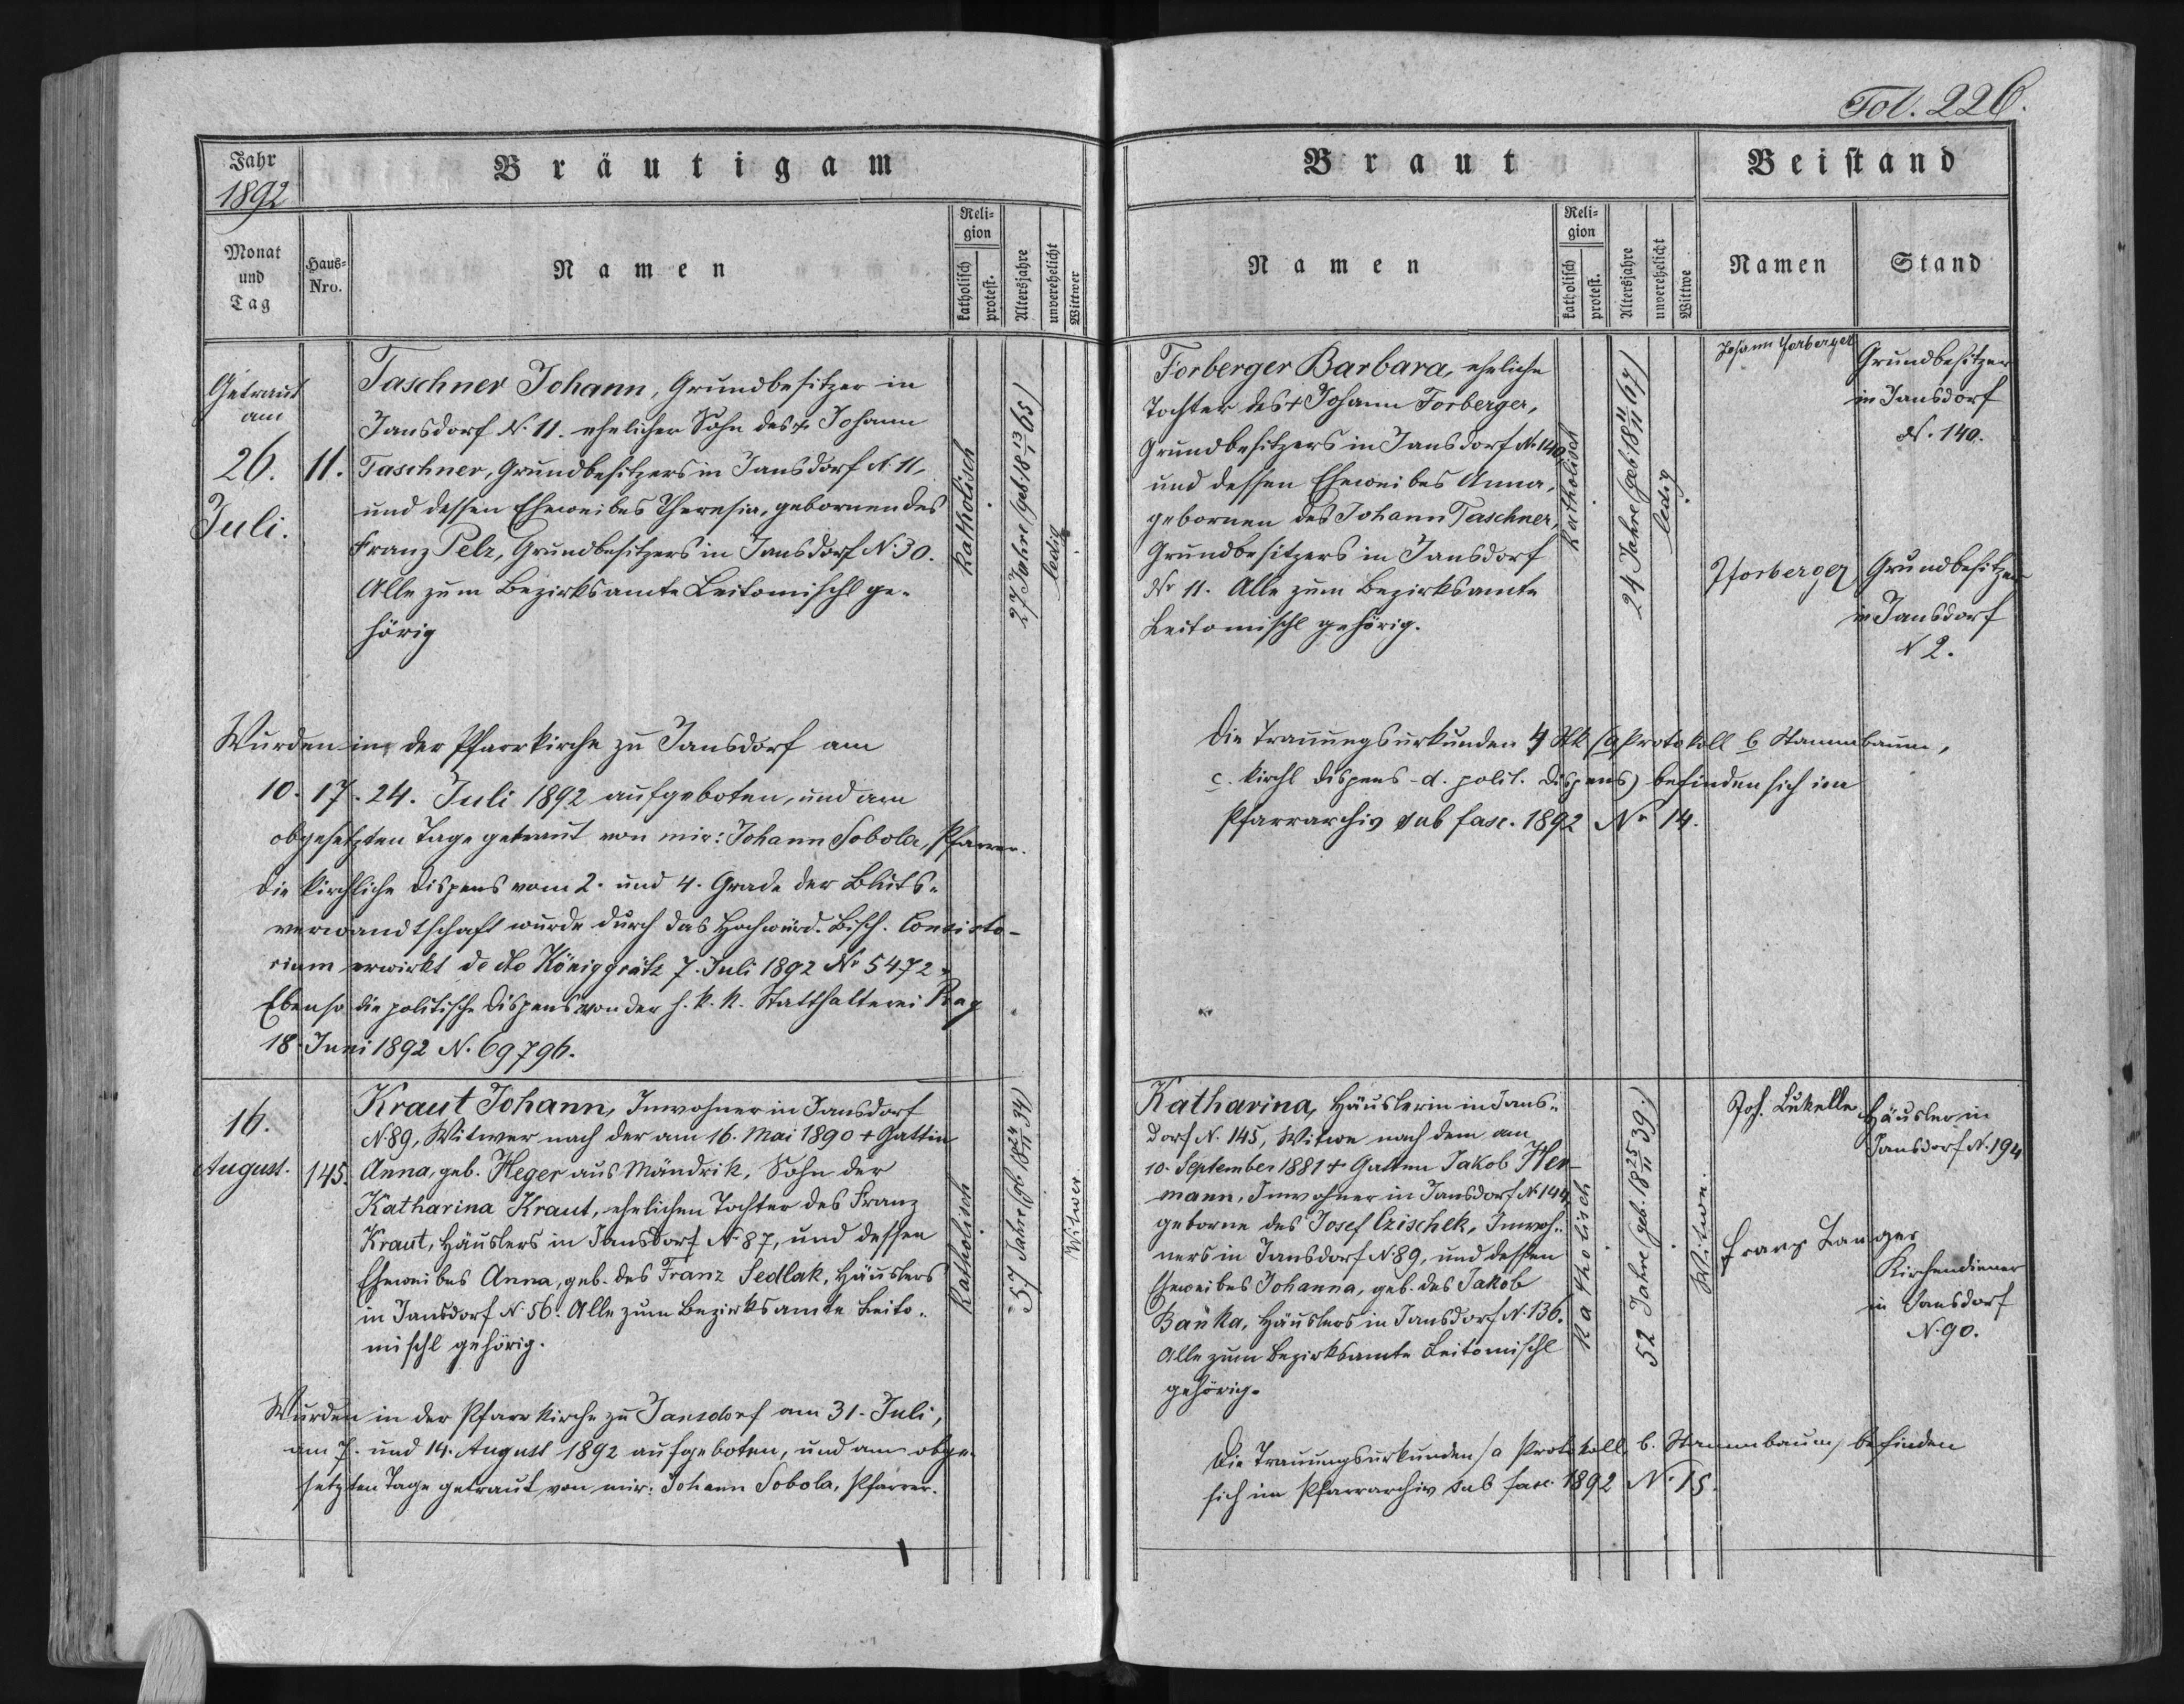 Fol. 226.
Jahr
1892
Bräutigam
Monat
und
Tag
Haus-
Nro.
Namen
Reli-
gion
katholisch
protest.
Altersjahre
unverehelicht
Wittwer
Getraut
am
26.
Juli.
11.
Taschner Johann, Grundbesitzer in
Jansdorf N. 11. ehelicher Sohn des + Johann
Taschner, Grundbesitzers in Jansdorf N. 11,
und dessen Eheweibes Theresia, gebornen des
Franz Pelz, Grundbesitzers in Jansdorf N. 30.
Alle zum Bezirksamte Leitomischl ge-
hörig
katholisch
27 Jahre (geb. 18 13/1 65)
ledig
Wurden in der Pfarrkirche zu Jansdorf am
10. 17. 24. Juli 1892 aufgeboten, und am
obgesetzten Tage getraut von mir: Johann Sobola, Pfarrer.
Die kirchliche Dispens vom 2. und 4. Grade der Bluts-
verwandtschaft wurde durch das Hochwürd. Bisch. Consisto-
rium erwirkt de dto Königgrätz 7. Juli 1892 Nr 5472,
Ebenso die politische Dispens von der h. k. k. Statthalterei Prag
18. Juni 1892 N. 69796.
16.
August.
145.
Kraut Johann, Inwohner in Jansdorf
N 89, Witwer nach der am 16. Mai 1890 + Gattin
Anna, geb. Heger aus Mändrik, Sohn der
Katharina Kraut, ehelichen Tochter des Franz
Kraut, Häuslers in Jansdorf N. 87, und dessen
Eheweibes Anna, geb. des Franz Sedlak, Häuslers
in Jansdorf N. 56. Alle zum Bezirksamte Leito-
mischl gehörig.
katholisch
57 Jahre (geb. 18 24/11 34)
Witwer.
Wurden in der Pfarrkirche zu Jansdorf am 31. Juli,
am 7. und 14. August 1892 aufgeboten, und am obge-
setzten Tage getraut von mir: Johann Sobola, Pfarrer.
Braut
Beistand
Namen
Reli-
gion
katholisch
protest.
Altersjahre
unverehelicht
Wittwe
Namen
Stand
Forberger Barbara, eheliche
Tochter des + Johann Forberger,
Grundbesitzers in Jansdorf N. 140,
und dessen Eheweibes Anna,
gebornen des Johann Taschner,
Grundbesitzers in Jansdorf
Nr 11. Alle zum Bezirksamte
Leitomischl gehörig.
katholisch
24 Jahre (geb. 18 11/11 67)
ledig
Johann Forberger
Grundbesitzer
in Jansdorf
N. 140.
Forberger
Grundbesitzer
in Jansdorf
N 2.
Die Trauungsurkunden 4 Stk (a Protokoll b Stammbaum,
c. kirchl Dispens - d. polit. Dispens) befinden sich im
Pfarrarchiv sub fasc. 1892 Nr 14.
Katharina, Häuslerin in Jans-
dorf N. 145, Witwe nach dem am
10. September 1881 + Gatten Jakob Her-
mann, Inwohner in Jansdorf N. 144,
geborne des Josef Czischek, Inwoh-
ners in Jansdorf N. 89, und dessen
Eheweibes Johanna, geb. des Jakob
Baňka, Häuslers in Jansdorf N. 136.
Alle zum Bezirksamte Leitomischl
gehörig.
katholisch
52 Jahre (geb. 18 25/11 39)
Witwe.
Joh. Lukelle
Häusler in
Jansdorf N. 194
Franz Langer
Kirchendiener
in Jansdorf
N. 90.
Die Trauungsurkunden (a Protokoll, b. Stammbaum) befinden
sich im Pfarrarchiv sub fasc. 1892 N. 15.